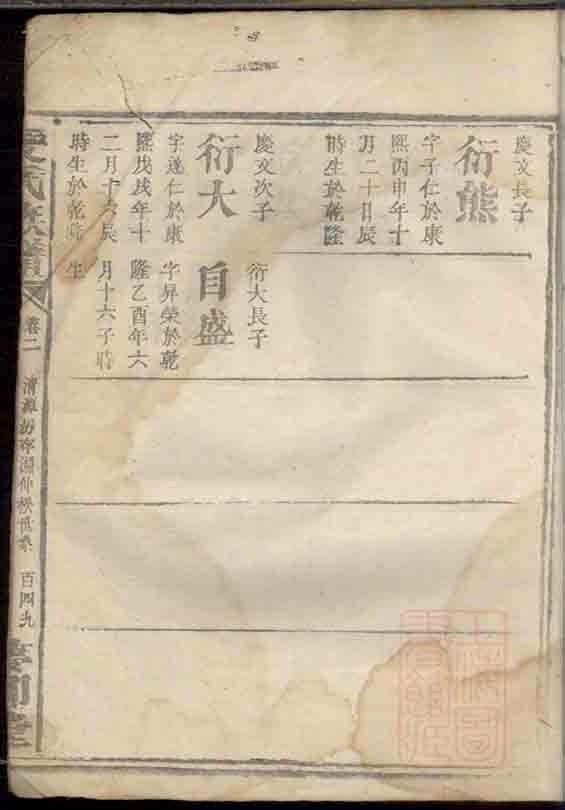 慶文長子
衍熊
字子仁於康
熙丙申年十
月二十日辰
時生於乾隆
慶文次子
衍大
字遂仁於康
熙戊戌年十
二月十六辰
時生於乾隆
衍大長子
自盛
字昇榮於乾
隆乙酉年六
月十六子時
生
氏族譜
卷二
清潭
世系
百四九